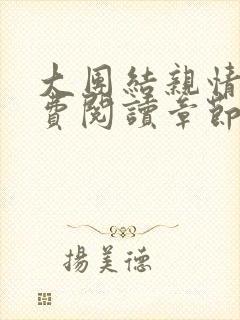 大團結親情
費閱讀章節
揚美德